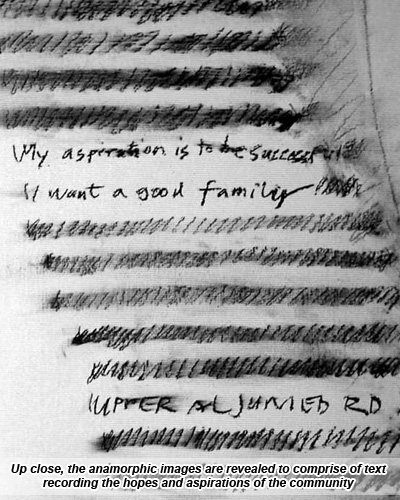 My aspiration is to be successful
I want a good family
UPPER ALJUNIED RD
Up close, the anamorphic images are revealed to comprise of text
recording the hopes and aspirations of the community